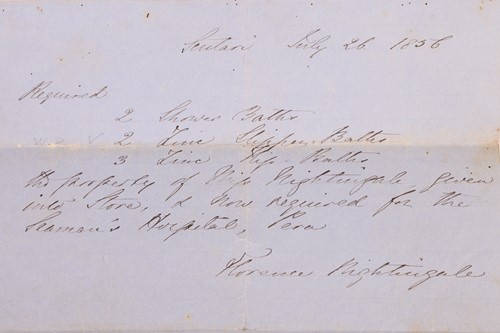 Scutari July 26 1856
Required
2 Shower Baths
2 Zinc Slipper Baths
3 Zinc Hip-Baths
the property of Miss Nightingale given
into Store, & now required for the
Seaman's Hospital, Pera
Florence Nightingale